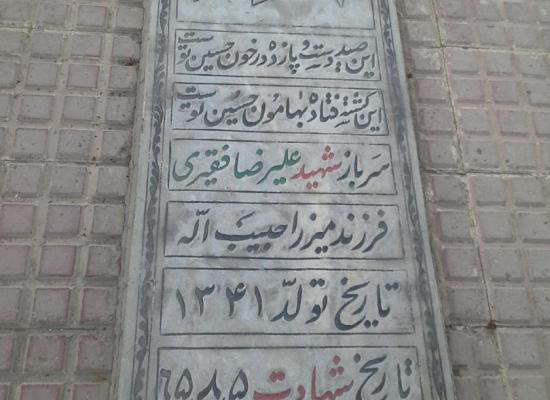 این صید دست و پا زده در خون حسین توست
این کشته فتاده بهامون حسین توست
سرباز شهید علیرضا فقیری
فرزند میرزا حبیب اله
تاریخ تولد ۱۳۴۱
تاریخ شهادت